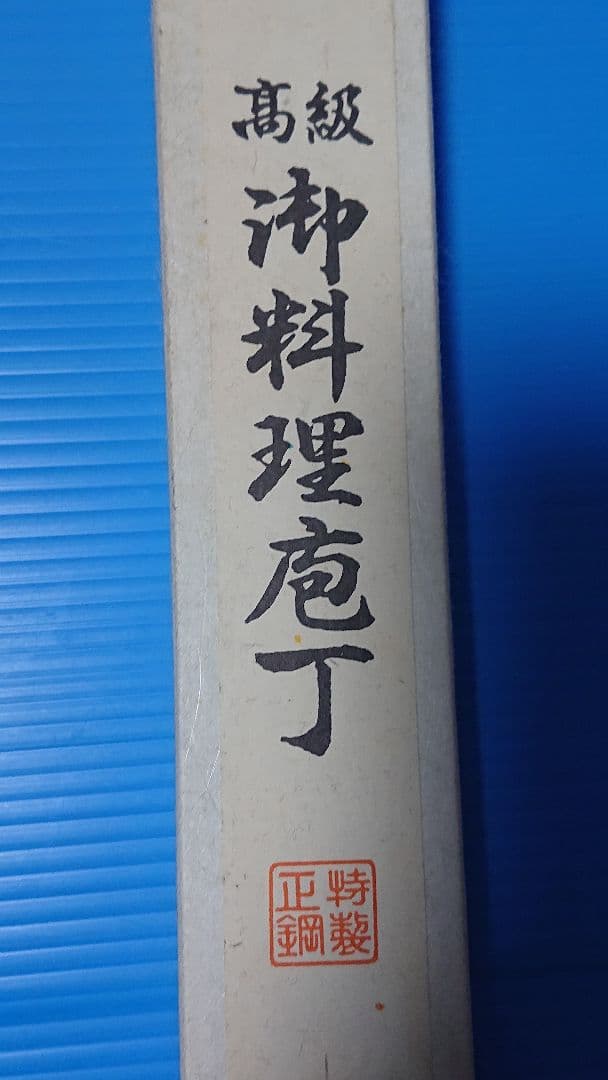 高級
御料理庖丁
特製
正鋼